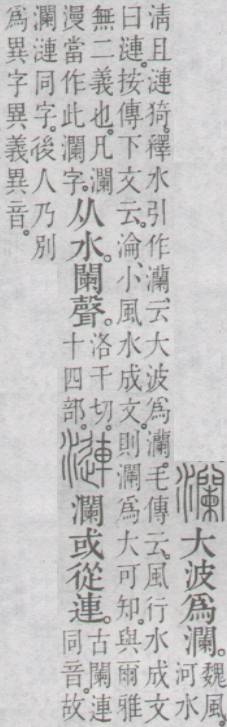 瀾大波爲瀾。魏風。河水
淸且漣猗。釋水引作瀾。云大波爲瀾。毛傳云。風行水成文
曰漣。按傳下文云。淪、小風水成文。則瀾爲大可知。與爾雅
無二義也。凡瀾
漫當作此瀾字。
从水。闌聲。洛干切。十四部。漣瀾或從連。古闌連同音。故
瀾漣同字。後人乃別
爲異字異義異音。